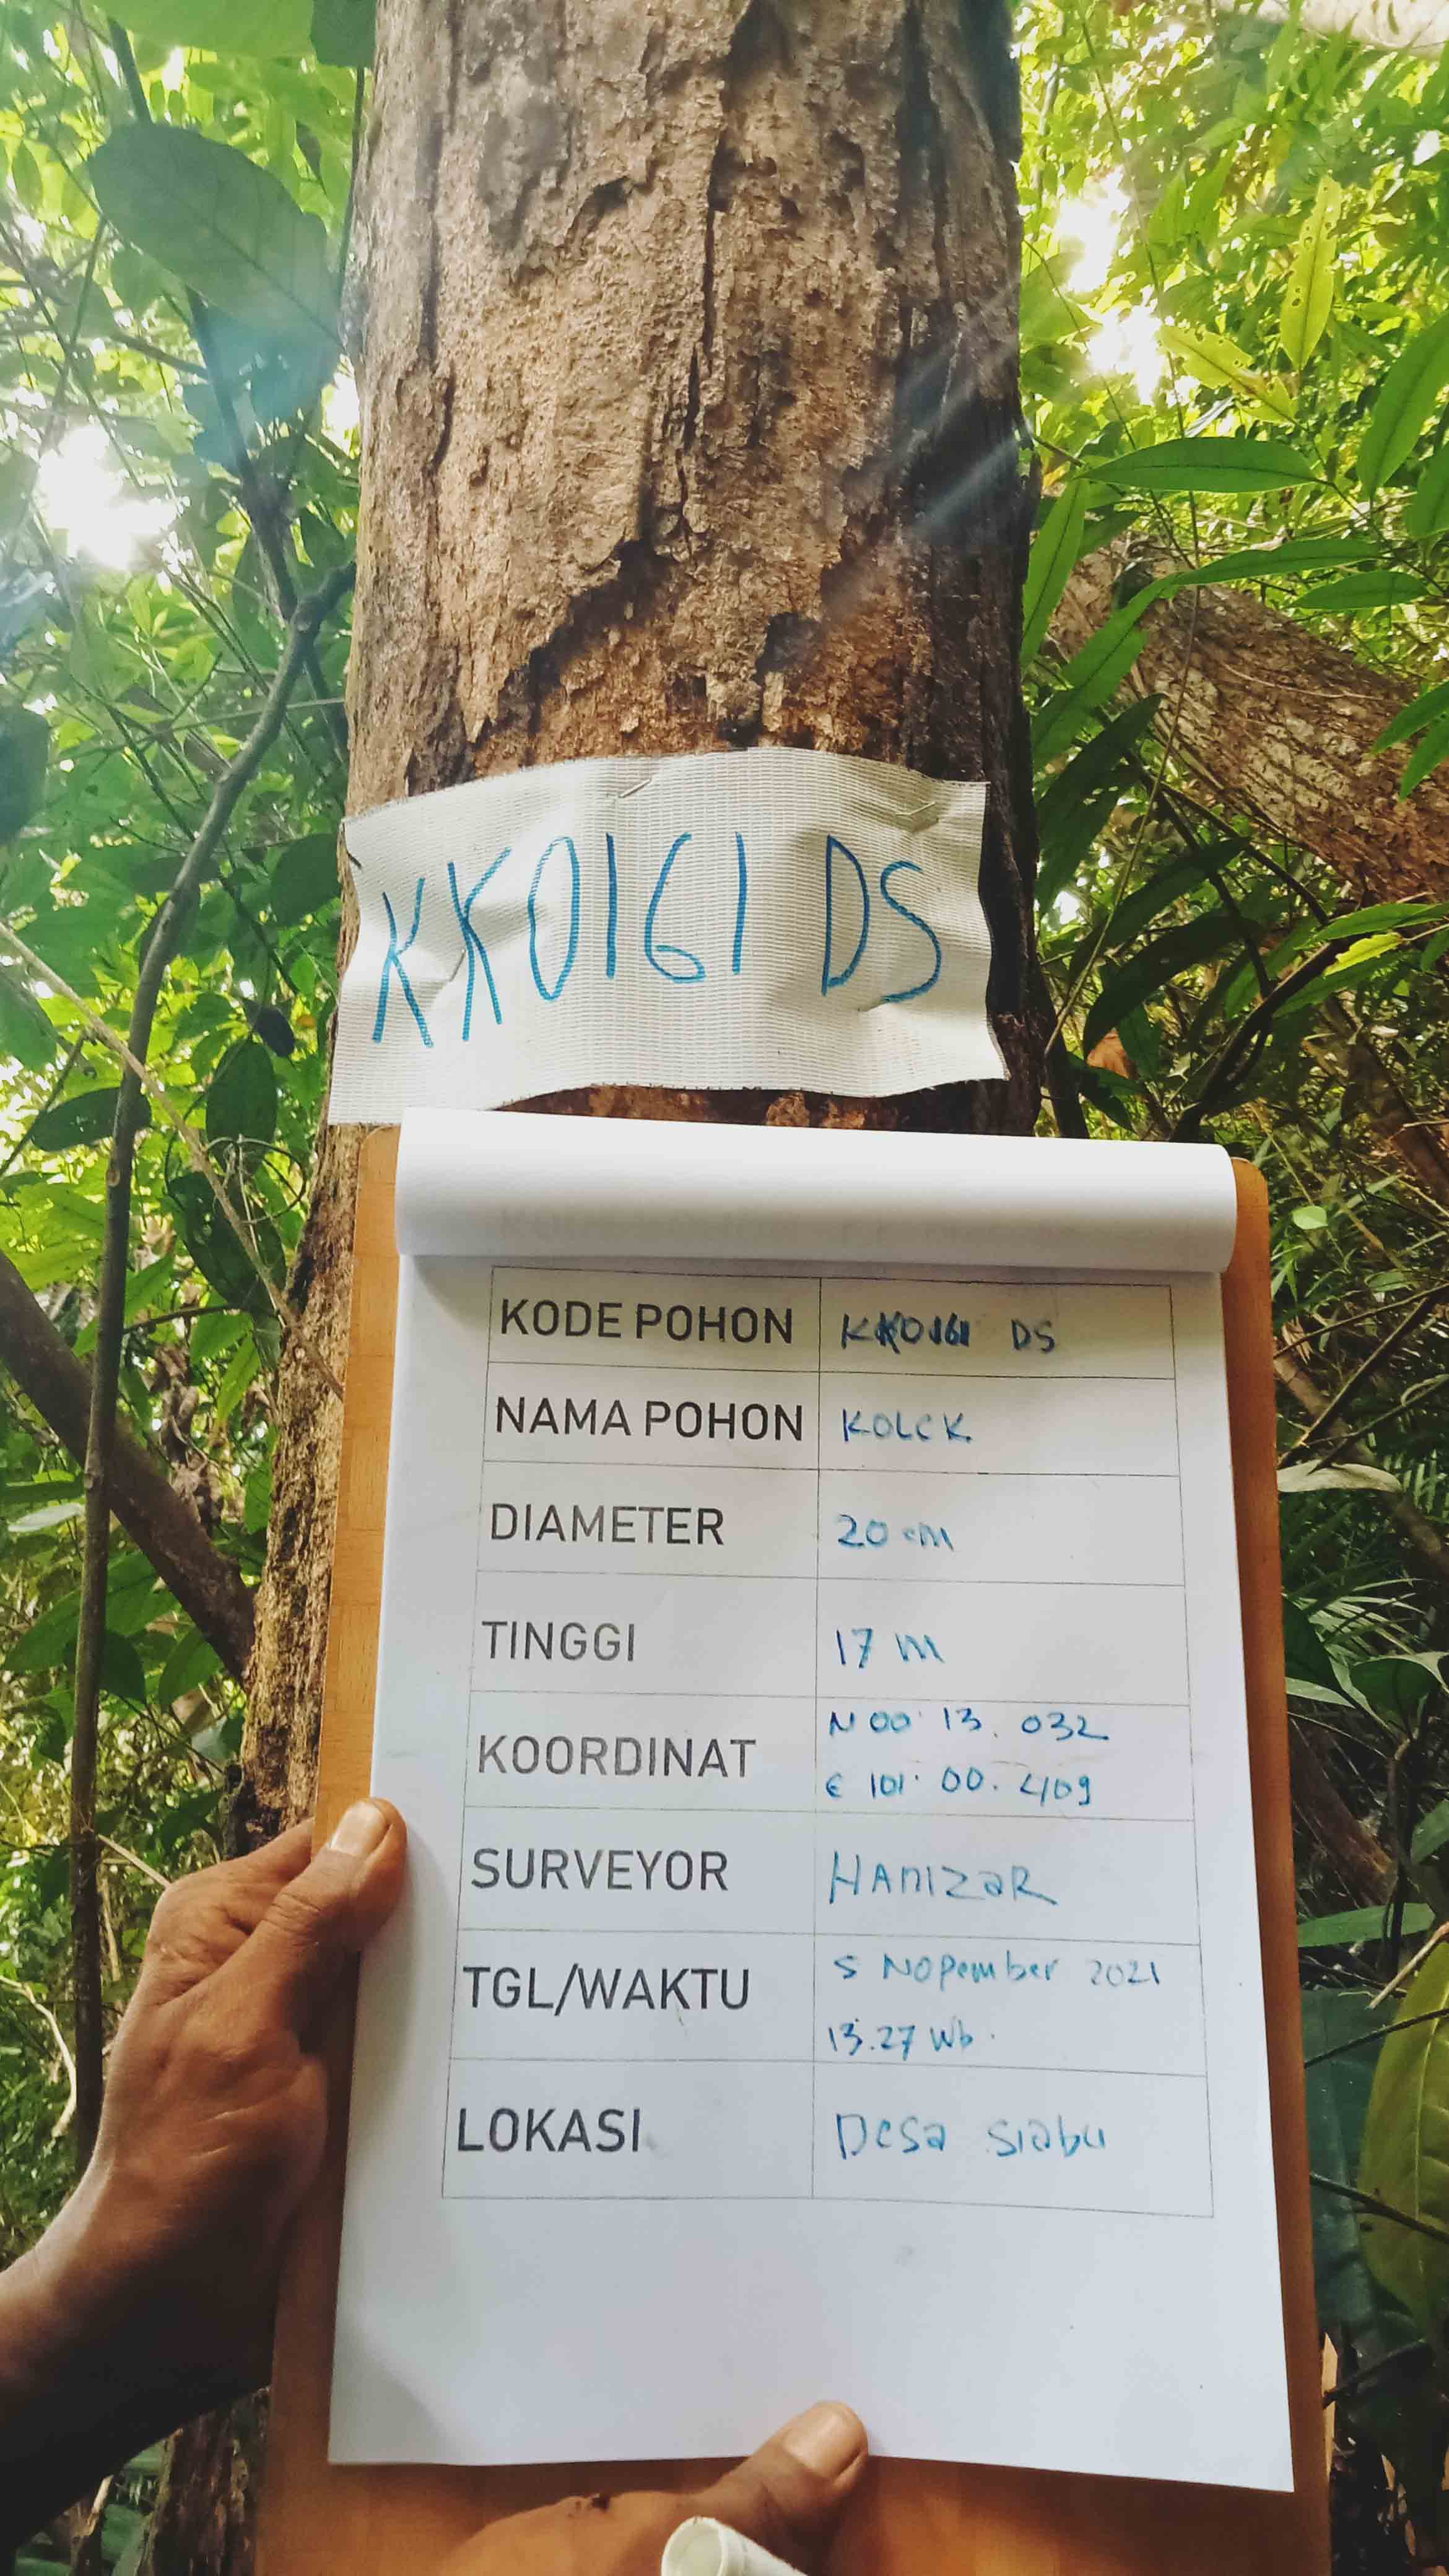 KK0161 DS
KODE POHON KK0161 DS
NAMA POHON KOLCK
DIAMETER 20 cm
TINGGI 17 m
KOORDINAT N 00. 13. 032
E 101. 00. 409
SURVEYOR HANIZAR
TGL/WAKTU 5 NOPember 2021
13.27 Wb.
LOKASI Desa siabu